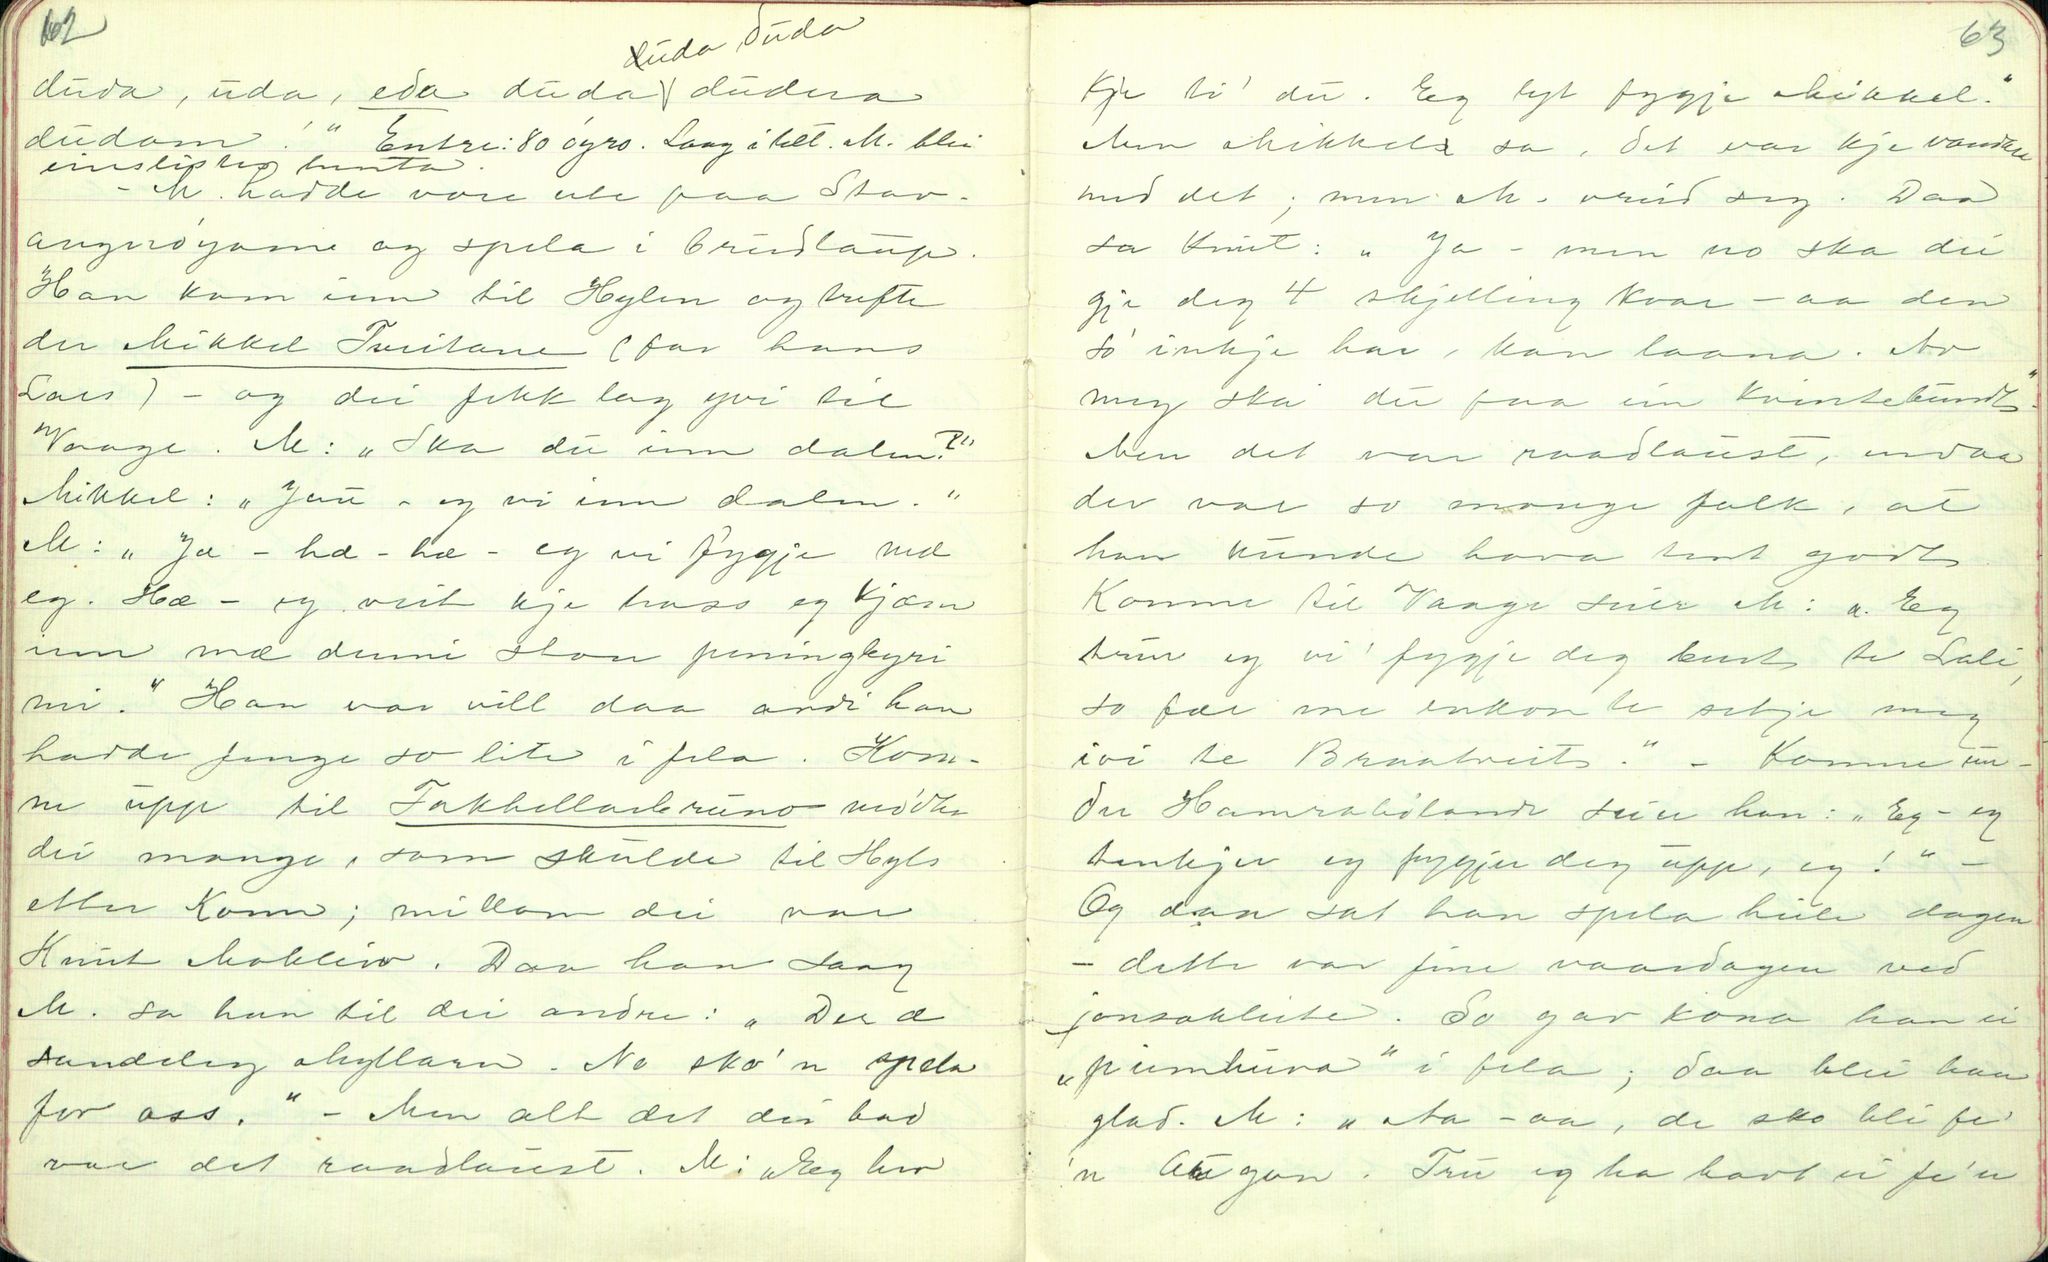 62
duda duda
duda, uda, eda duda dudera
dudam!" Entre: 80 öyro. Laag i telt. M. blei
einslistes henta.
- M. hadde vore ute paa Stav-
angeröyane og spela i brudlaup.
Han kom inn til Hylen og trefte
der Mikkel Tveitane (far hans
Lars) - og dei fekk lag yvi til
Vaage. M: „Ska du inn dalen?"
Mikkel: „Jau - eg vi inn dalen."
M: „Ja - hæ - hæ - eg vi fygje med
eg. Hæ - eg veit kje hoss eg kjæm
inn mæ denni stou peningkyri
mi." Han var vill daa andi han
hadde fenge so lite i fela. Kom-
ne upp til Fokkellarbruno mödte
dei mange, som skulde til Hyls
etter Korn; millom dei var
Knut Mokleiv. Daa han saag
M. sa han til dei andre: „Der æ
sandeleg Myllarn. No sko'n spela
for oss." - Men alt det dei bad
var det raadlaust. M: „Eg hev
63
kje ti' du. Eg lyt fygje Mikkel."
Men Mikkel sa, det var kje vandare
med det; men M. vreid seg. Daa
sa Knut: „Ja - men no ska dei
gje deg 4 skjelling kvar - aa den
so' inkje har, kan laana. Av
meg ska du faa ein kvintebundt."
Men det var raadlaust, endaa
der var so mange folk, at
han kunde hava tent godt.
Komne til Vaage seier M: „Eg
trur eg vi' fygje deg burt te Lali,
so fær me enkon te setje meg
ivi te Braatveit." - Komne un-
der Hamrabölande seier han: „Eg - eg
tenkjer eg fygjer deg upp, eg!" -
Og daa sat han spela heile dagen
- dette var fine vaardagen ved
jonsokleite. So gav kona han ei
„pumhuva" i fela; daa blei han
glad. M: „Aa - aa, de sko bli fe'
'n Augon. Tru eg ha havt ei fe'n